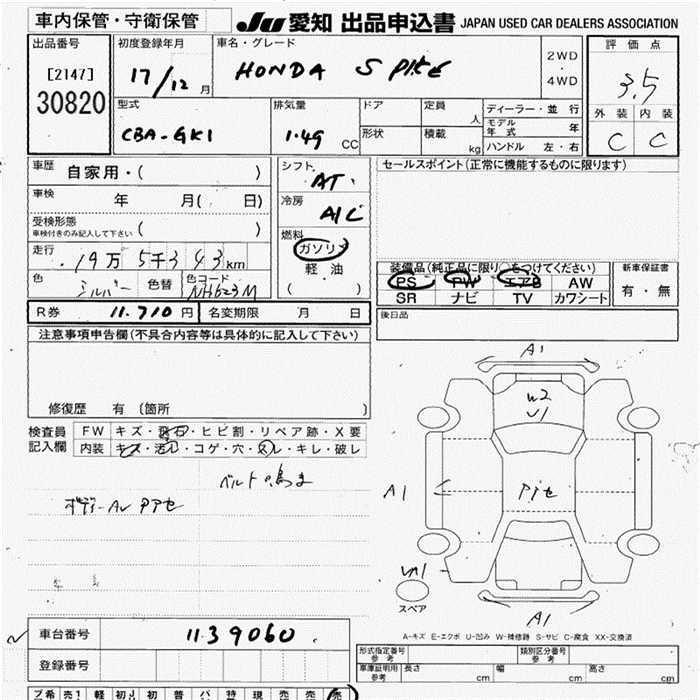 車内保管・守衛保管
JU 愛知 出品申込書 JAPAN USED CAR DEALERS ASSOCIATION
出品番号 初度登録年月 車名・グレード 評価点
[2147] 17/12 月 HONDA S PIKE 2WD・4WD 3.5
30820
型式 排気量 ドア 定員 人 ディーラー・並行 外装 内装
CBA-GK1 1.49 CC 形状 積載 kg モデル年式 年 C C
ハンドル 左・右
車歴 自家用・( ) シフト AT セールスポイント(正常に機能するものに限ります)
車検 年 月( 日) 冷房 A/C
受検形態 ( )
車検付きのみ記入して下さい
燃料 ガソリン
走行 19万 5千3 43 km 軽油 装備品(純正品に限り○をつけてください) 新車保証書
色 シルバー 色替 色コード NH623M ( ) PS PW エアB AW 有・無
SR ナビ TV カワシート
R券 11.710 円 名変期限 月 日 後日品
注意事項申告欄(不具合内容等は具体的に記入して下さい)
A1
W2
U1
修復歴 有 〔箇所 〕
検査員 FW キズ・飛石・ヒビ割・リペア跡・X要
記入欄 内装 キズ・活レ・コゲ・穴・スレ・キレ・破レ
ベルト鳴き
A1
ボディーAU アアセ
アアセ
UA1
スペア
A1
A-キズ E-エクボ U-凹み W-補修跡 S-サビ C-腐食 XX-交換済
車台番号 1139060
登録番号
形式指定番号 参考 類別区分番号 参考
車庫証明用 参考 長さ cm 幅 cm 高さ cm